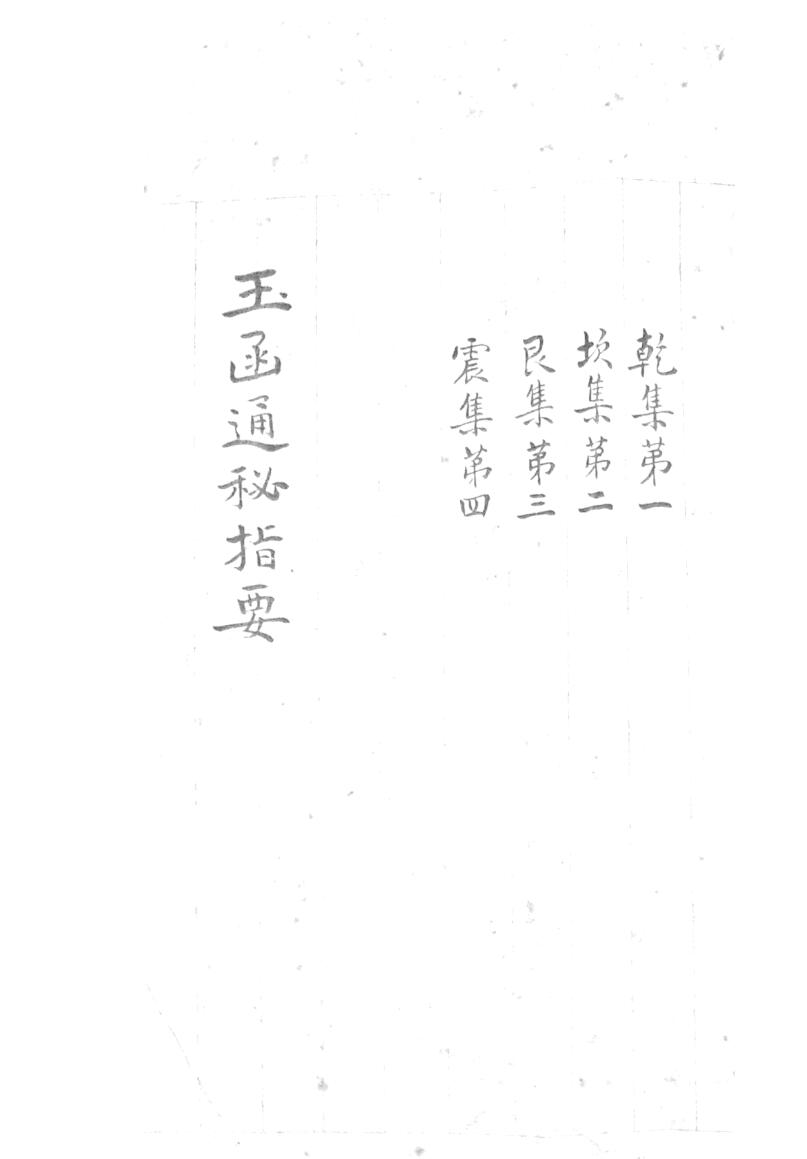 乾集第一
坎集第二
艮集第三
震集第四
玉函通秘指要